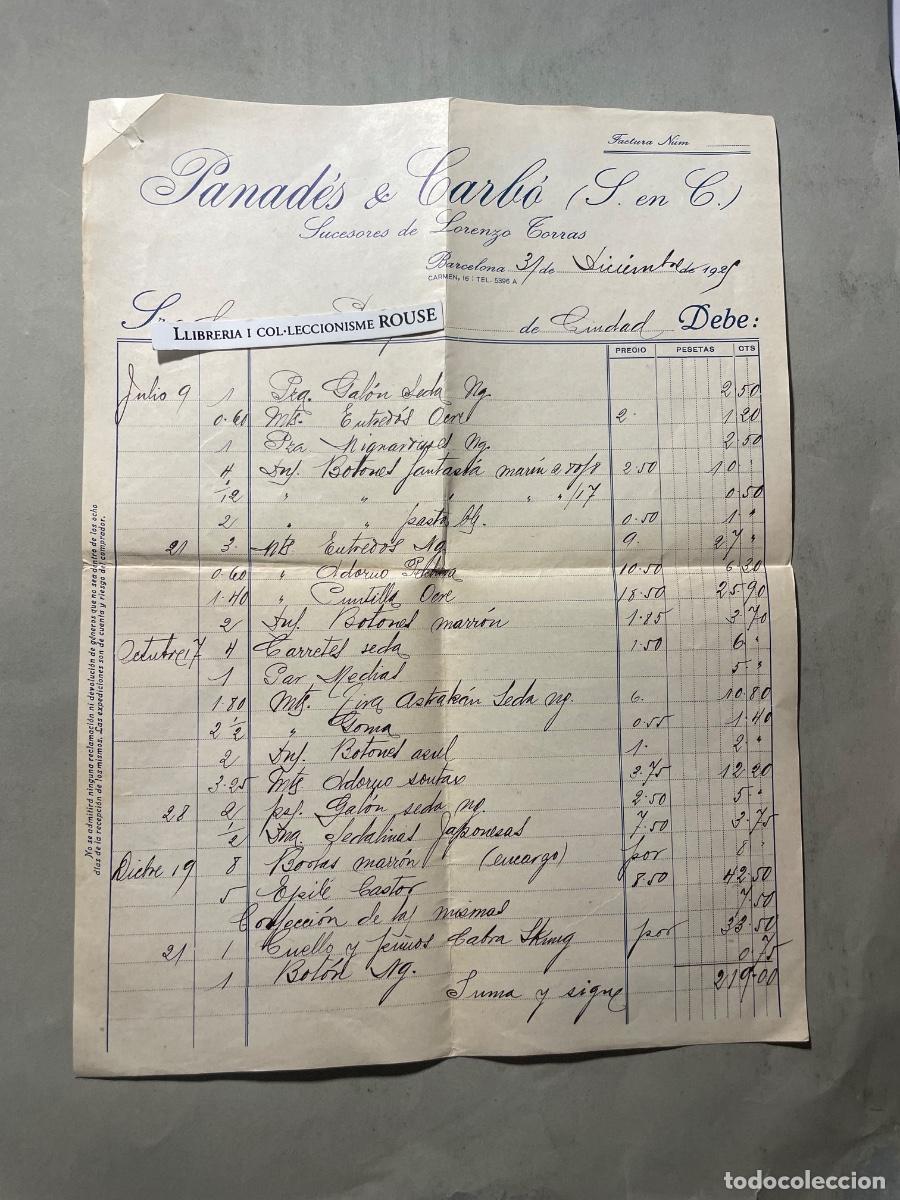 Factura Núm
Panadés & Carbó (S. en C.)
Sucesores de Lorenzo Torras
Barcelona 31 de Diciembre de 1925
CARMEN, 16 : TEL. 5396 A
LLIBRERIA I COL·LECCIONISME ROUSE
de Ciudad Debe:
PRECIO PESETAS CTS
Julio 9 1 Pza. Galón Seda Ng. 2 50
0.60 Mts. Entredós Ocre 2. 1 20
1 Pza. Ng. 2.50
4 Dnj. Botones fantasía marrón 2.50 10 "
1/12 " " " " /17 0.50
2 " " pasta bl. 0.50 1 "
21 3. Mts. Entredos Ng. 9. 27 "
0.60 " Adorno 10.50 6 20
1.40 " Puntilla Ocre 18.50 25.90
2 Dnj. Botones marrón 1.85 3.70
Octubre 17 4 Carretes seda 1.50 6 "
1 Par Medias 5 "
1.80 Mts. Tira Astrakán Seda ng. 6. 10.80
2 1/2 " Goma 0.55 1.40
2 Dnj. Botones azul 1. 2 "
3.25 Mts Adorno soutax 3.75 12.20
28 2 psj. Galón seda ng. 2.50 5 "
1/2 Dna Sedalinas Japonesas 7.50 3.75
Dicbre 19 8 marrón (encargo) por 8 "
5 Castor 8.50 42.50
Confección de las mismas 7.50
21 1 Cuello y puños Cabra Skung por 33.50
1 Botón Ng. 0.75
Suma y sigue 219.00
No se admitirá ninguna reclamación ni devolución de géneros que no sea dentro de los ocho
días de la recepción de los mismos. Las expediciones son de cuenta y riesgo del comprador.
todocoleccion